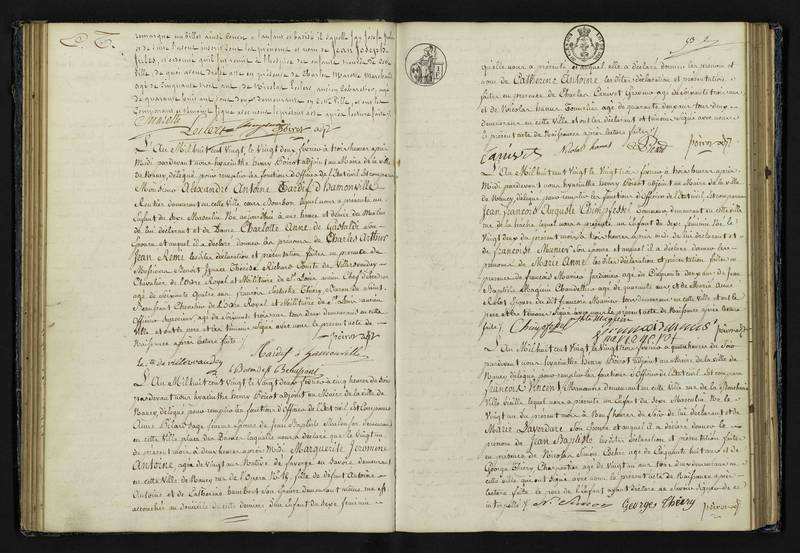 remarqué un billet ainsi conçu : l'enfant est baptisé il s'appelle Jean Joseph Jules
et de suite l'avons inscrit sous les prénoms et nom de Jean Joseph
Jules, et ordonné qu'il fut remis à l'hospice des enfans trouvés de cette
ville. de quoi avons dressé acte en présence de Charles Marotte Marchand
agé de cinquante trois ans, de Nicolas Leclerc ancien Laboureur, agé
de quarante huit ans tous deux demeurants en cette Ville, et ont les
Comparants et témoins signé avec nous le présent acte après lecture faite.
Marotte
Leclerc
Poirot adjt
L'An Mil huit cent Vingt, le Vingt deux février à trois heures après
Midi pardevant nous hyacinthe henry Poirot adjoint au Maire de la ville
de Nancy, délégué pour remplir les fonctions d'Officier de l'Etat civil est comparu
Monsieur Alexandre Antoine Tardif d'hamonville
Rentier demeurant en cette Ville cours Bourbon lequel nous a présenté un
Enfant du sexe Masculin Né aujourd'hui à une heure et demie du Matin
de lui déclarant et de Dame Charlotte Anne de Gastaldi son
Epouse et auquel il a déclaré donner les prénoms de Charles Arthur
Jean Remi lesdites déclaration et présentation faites en présence de
Messieurs Benoit Ignace Thérèse Richard Comte de Villersvaudey
Chevalier de l'Ordre Royal et Militaire de St Louis ancien Chef d'Escadron
agé de soixante quatre ans
Officier Supérieur, agé de soixante trois ans, tous deux demeurants en cette
Ville et ont le père et les témoins signé avec nous le présent acte de
Naissance après lecture faite
Poirot adjt
Tardif d'hamonville
le cte de villersvaudey
L'An Mil huit cent Vingt le Vingt deux février à cinq heures du soir
pardevant nous hyacinthe henry Poirot adjoint au Maire de la ville de
Nancy, délégué pour remplir les fonctions d'Officier de l'Etat civil est comparue
Anne Bélard sage femme épouse de Jean Baptiste demeurant
en cette Ville place des Dames laquelle nous a déclaré que le Vingt un
du présent mois à deux heures après Midi Marguerite Jeromine
Antoine, agée de Vingt ans Native de faverge en Savoie demeurant
en cette Ville de Nancy rue de l'Opera No 18 fille de défunt Antoine
Antoine et de Catherine son épouse demeurant même rue est
accouchée au domicile de cette dernière d'un Enfant du sexe féminin
93
qu'elle nous a présenté et auquel elle a déclaré donner les prénom et
nom de Catherine Antoine lesdites déclaration et présentation
faites en présence de Charles Canivet Graveur agé de soixante trois ans
et de Nicolas hanus Tonnelier agé de quarante deux ans tous deux
demeurants en cette Ville et ont les déclarante et témoins signé avec nous
le présent acte de Naissance après lecture faite
Nicolas hanus
Poirot adjt
L'An Mil huit cent Vingt le Vingt trois février à trois heures après
Midi pardevant nous hyacinthe henry Poirot adjoint au Maire de la ville
de Nancy, délégué pour remplir les fonctions d'Officier de l'Etat civil, est comparu
Jean francois Auguste Chimpfessel Tanneur, demeurant en cette ville
rue de la hache lequel nous a présenté un Enfant du sexe féminin Né le
Vingt deux du présent mois à trois heures après Midi de lui déclarant et
de francoise Munier son Epouse et auquel il a déclaré donner les
prénoms de Marie Anne lesdites déclaration et présentation faites en
présence de francois Munier Jardinier agé de Cinquante deux ans de Jean
Baptiste Magnien Chandellier agé de quarante ans et de Marie Anne
Robot Epouse du dit francois Munier tous demeurants en cette Ville et ont le
père et les témoins signé avec nous le présent acte de Naissance après lecture
faite
Poirot adjt
L'An Mil huit cent Vingt le Vingt trois février à quatre heures du soir
pardevant nous hyacinthe henry Poirot adjoint au Maire de la ville de
Nancy délégué pour remplir les fonctions d'Officier de l'Etat civil est comparu
francois Vincent Manoeuvre demeurant en cette Ville rue de la Boucherie
Ville vieille lequel nous a présenté un Enfant du sexe Masculin Né le
Vingt un du présent mois à Neuf heures du soir de lui déclarant et de
Marie Lavordare son Epouse et auquel il a déclaré donner le
prénom de Jean Baptiste lesdites déclaration et présentation faites
en présence de Nicolas Simon Cocher agé de Cinquante huit ans et de
George Thiery Charpentier agé de Vingt six ans tous deux demeurants en
cette ville qui ont signé avec nous le présent acte de Naissance après
lecture faite le père de l'Enfant ayant déclaré ne savoir signer de ce
interpellé
N. Simon
Georges Thiery
Poirot adjt